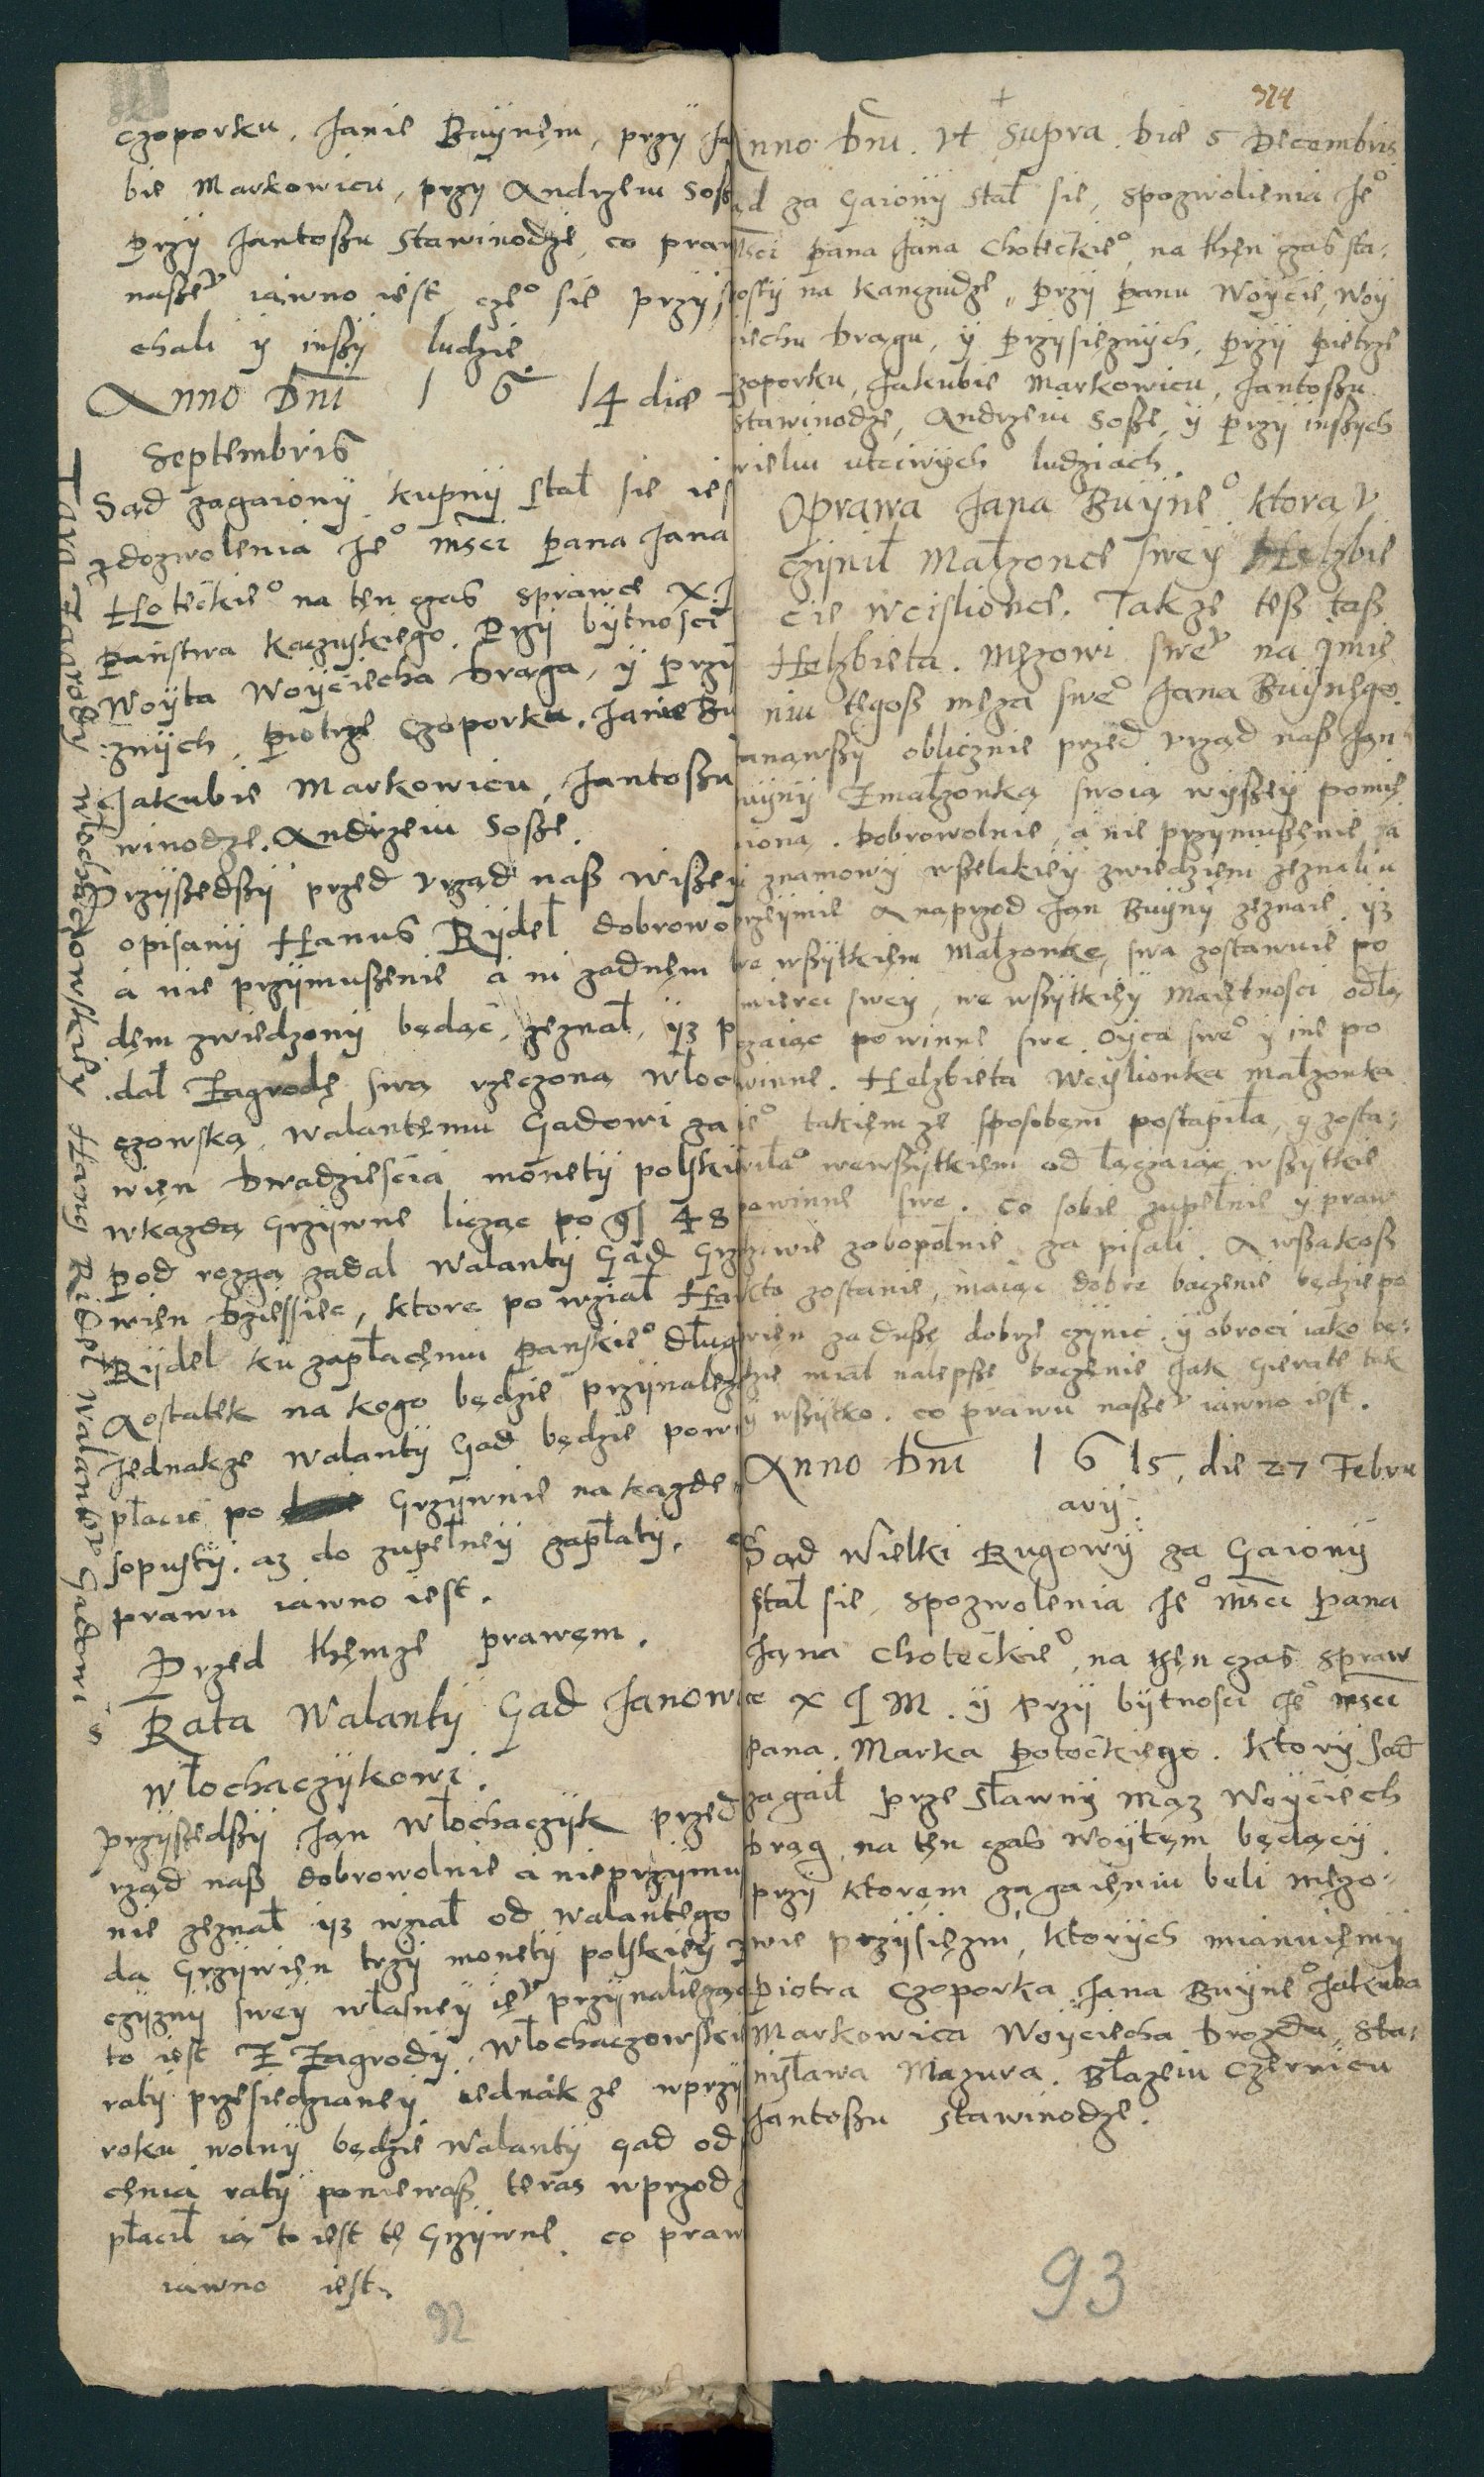 czoporku, Janie Buÿnęm, przÿ Ja
bie Markowicu, przÿ Andrzeiu Soß
przÿ Jantoßu Stawinodze, co praw
naßeᵛ iawno iest czeº sie przÿs
chali ÿ inßÿ ludzie.
Anno Dnī 1 6 14 die
Septembris
Sąd zagaionÿ kupnÿ stał sie ies
zdozwolenia Jeº mści pana Jana
Hoteckieº na tęn czas sprawce X. J
państwa Kaczuskiego. Przÿ bÿtnosci
Woÿta Woÿciecha draga, ÿ przÿ
znÿch, piotrze Czoporku, Janie Bu
Jakubie Markowicu, Jantoßu
winodze, Andrzeiu Soße.
Przÿßedßÿ przed vrząd naß wißeÿ
opisanÿ Hanus Rÿdel dobrowo
á nie przÿmußenie á ni zadnęm
dęm zwiedzonÿ będąc, zeznał, ÿz p
dał Zagrodę swą rzeczoną Włoc
czowską, walantęmu Gadowi za
więn dwadziescia monetÿ polskiÿ
wkazdą Grzÿwne licząc po gß 48
pod rozgą zadal walantÿ Gad Grz
więn dziessiec, ktore po wział Ha
Rÿdel ku zapłacęniu pańskieº dług
Aostatek na kogo będzie przÿnalez
Jednakze walantÿ Gad będzie pow
płacic po Grzÿwnie na kazde
sopustÿ. az do zupełneÿ zapłatÿ.
prawu iawno iest.
Przed thęmze prawęm.
Rata Walantÿ Gad Janow
Włochaczÿkowi.
przÿßedßÿ Jan Włochaczÿk przed
rząd naß dobrowolnie á nieprzÿmu
nie zeznał ÿz wział od walantego
da Grzÿwięn trzÿ monetÿ polskieÿ
czÿznÿ sweÿ własneÿ ieᵛ przÿnalezą
to iest Z Zagrodÿ Włochaczowskie
ratÿ przesiedzianeÿ iednák ze wprzÿ
roku wolnÿ będzie Walantÿ gad od
cęnia ratÿ ponieważ teras wprzod
płacił ią to iest tę Grzÿwne. co praw
iawno iest.
92
Tára Zagrodÿ włochaczowskieÿ Hanus Ridel walantęᵛ Gadowi
324
Anno dnī. vt supra. die 5 decembris
ąd za Gaionÿ stał sie, spozwolienia Jeº
Mści pana Jana Choteckieº, na thęn czas sta-
rostÿ na Kanczudze, przÿ panu Woÿcie, Woÿ
iechu dragu, ÿ przÿsięznÿch, przÿ pietrze
zoporku, Jakubie Markowicu, Jantoßu
Stawinodze, Andrzeiu Soße, ÿ przÿ inßÿch
wieliu utciwÿch ludziach.
Oprawa Jana Buÿneº ktorą v
czÿnił Małzonce sweÿ Helzbie
cie wcislionce. Takze teß taß
Helzbieta. Męzowi sweᵛ na jmie
niu tegoß męza sweº Jana Buÿnego.
tanawßÿ oblicznie przed vrząd naß Jan
uÿnÿ Zmałzonką swoią wÿßeÿ pomie
niona. dobrowolnie, á nie przÿmußęnie zá
znamowÿ wßelakieÿ zwiedzieni zeznaliu
przeÿmie Anaprzod Jan Buÿnÿ zeznaie, ÿz
we wßÿtkięm Małzonke, swa zostawuie po
smierci sweÿ, we wßÿtkieÿ Maiętnosci odłą
czaiąc powinne swe oÿca sweº ÿ ine po
winne. Helzbieta Wcÿlionka małzonka
ieº takięm ze sposobęm postąpiła, ÿ zosta-
wiłaº wewßÿtkięm od łączaiąc wßÿtkie
powinne swe. co sobie zupełnie ÿ praw
ziwie zobopolnie za pisali. Awßakoß
kto zostanie, maiąc dobre baczenie będzie po
więn zadußę dobrze czÿnic. ÿ obroci iako bę-
dzie miał nalepße baczęnie Jak Gierate tak
ÿ wßÿtko. co prawu naßeᵛ iawno iest.
Anno dnī 1 6 15, die 27 Febru
arij
Sąd Wielki Rugowÿ za Gaionÿ
stał sie, spozwolenia Jeº mści pana
Jana Choteckieº, na tęn czas spraw
ce X J M. ÿ przÿ bÿtnosci Jeº mści
pana. Marka potockiego. Ktorÿ sąd
zagaił prze Sławnÿ Mąz Woÿciech
drąg, na tęn czas woÿtęm będącÿ
przÿ ktoręm zagaięniu beli męzo-
wie przÿsięzni, ktorÿch mianuięmÿ
piotra Czoporka Jana Buÿneº Jakuba
Markowica Woÿciecha drozda, sta-
nisława Mazura. Błazeiu Czernicu
Jantoßu stawinodze.
93